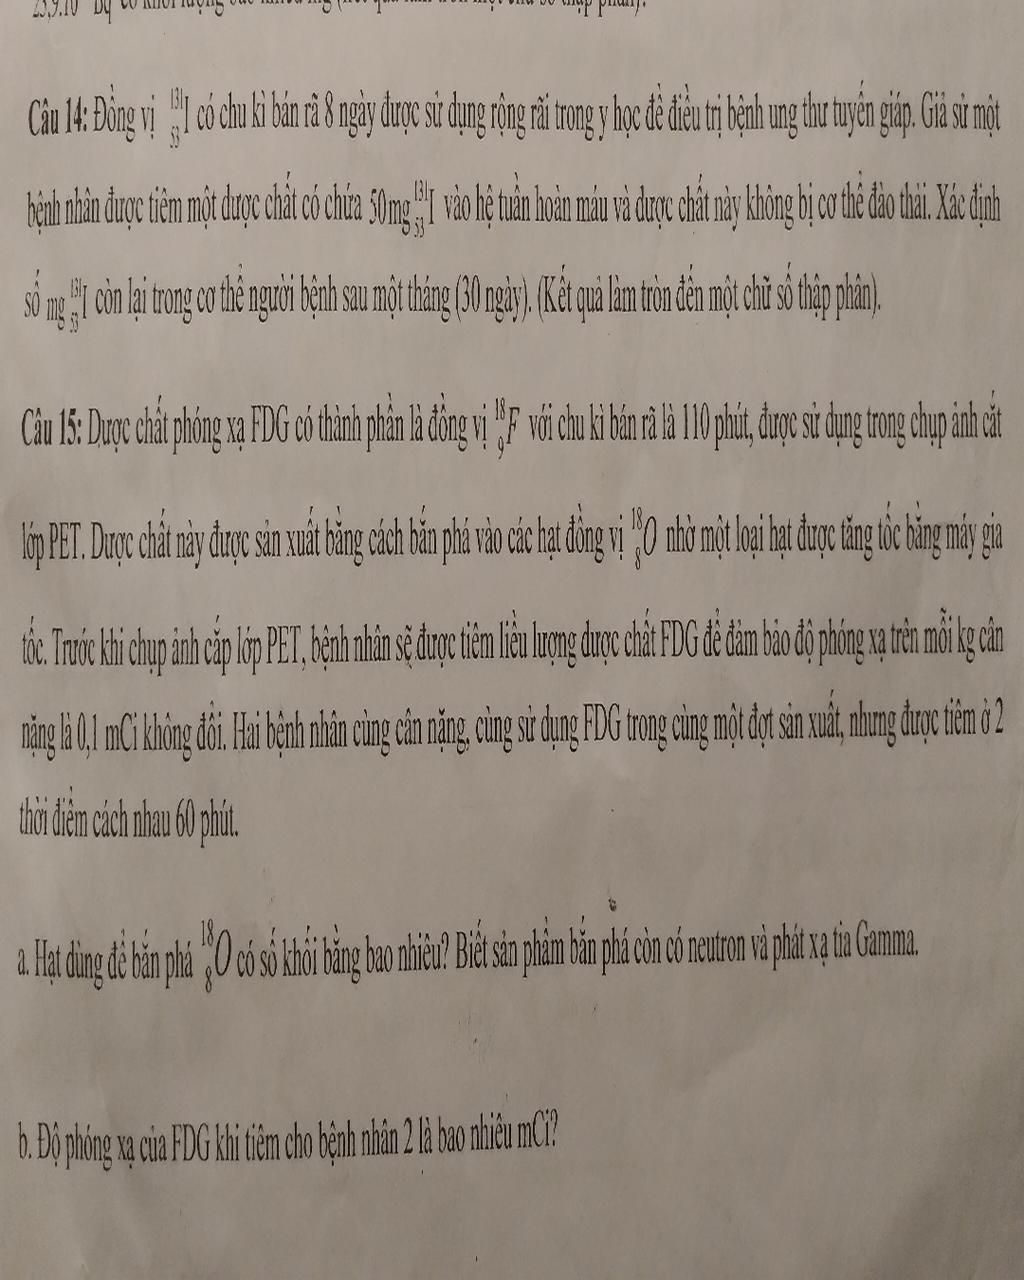 Câu 14: Đồng vị ¹³¹₅₃I có chu kì bán rã 8 ngày được sử dụng rộng rãi trong y học để điều trị bệnh ung thư tuyến giáp. Giả sử một
bệnh nhân được tiêm một dược chất có chứa 50mg ¹³¹₅₃I vào hệ tuần hoàn máu và dược chất này không bị cơ thể đào thải. Xác định
số mg ¹³¹₅₃I còn lại trong cơ thể người bệnh sau một tháng (30 ngày). (Kết quả làm tròn đến một chữ số thập phân).
Câu 15: Dược chất phóng xạ FDG có thành phần là đồng vị ¹⁸₉F với chu kì bán rã là 110 phút, được sử dụng trong chụp ảnh cắt
lớp PET. Dược chất này được sản xuất bằng cách bắn phá vào các hạt đồng vị ¹⁸₈O nhờ một loại hạt được tăng tốc bằng máy gia
tốc. Trước khi chụp ảnh cắp lớp PET, bệnh nhân sẽ được tiêm liều lượng dược chất FDG để đảm bảo độ phóng xạ trên mỗi kg cân
nặng là 0,1 mCi không đổi. Hai bệnh nhân cùng cân nặng, cùng sử dụng FDG trong cùng một đợt sản xuất, nhưng được tiêm ở 2
thời điểm cách nhau 60 phút.
a. Hạt dùng để bắn phá ¹⁸₈O có số khối bằng bao nhiêu? Biết sản phẩm bắn phá còn có neutron và phát xạ tia Gamma.
b. Độ phóng xạ của FDG khi tiêm cho bệnh nhân 2 là bao nhiêu mCi?